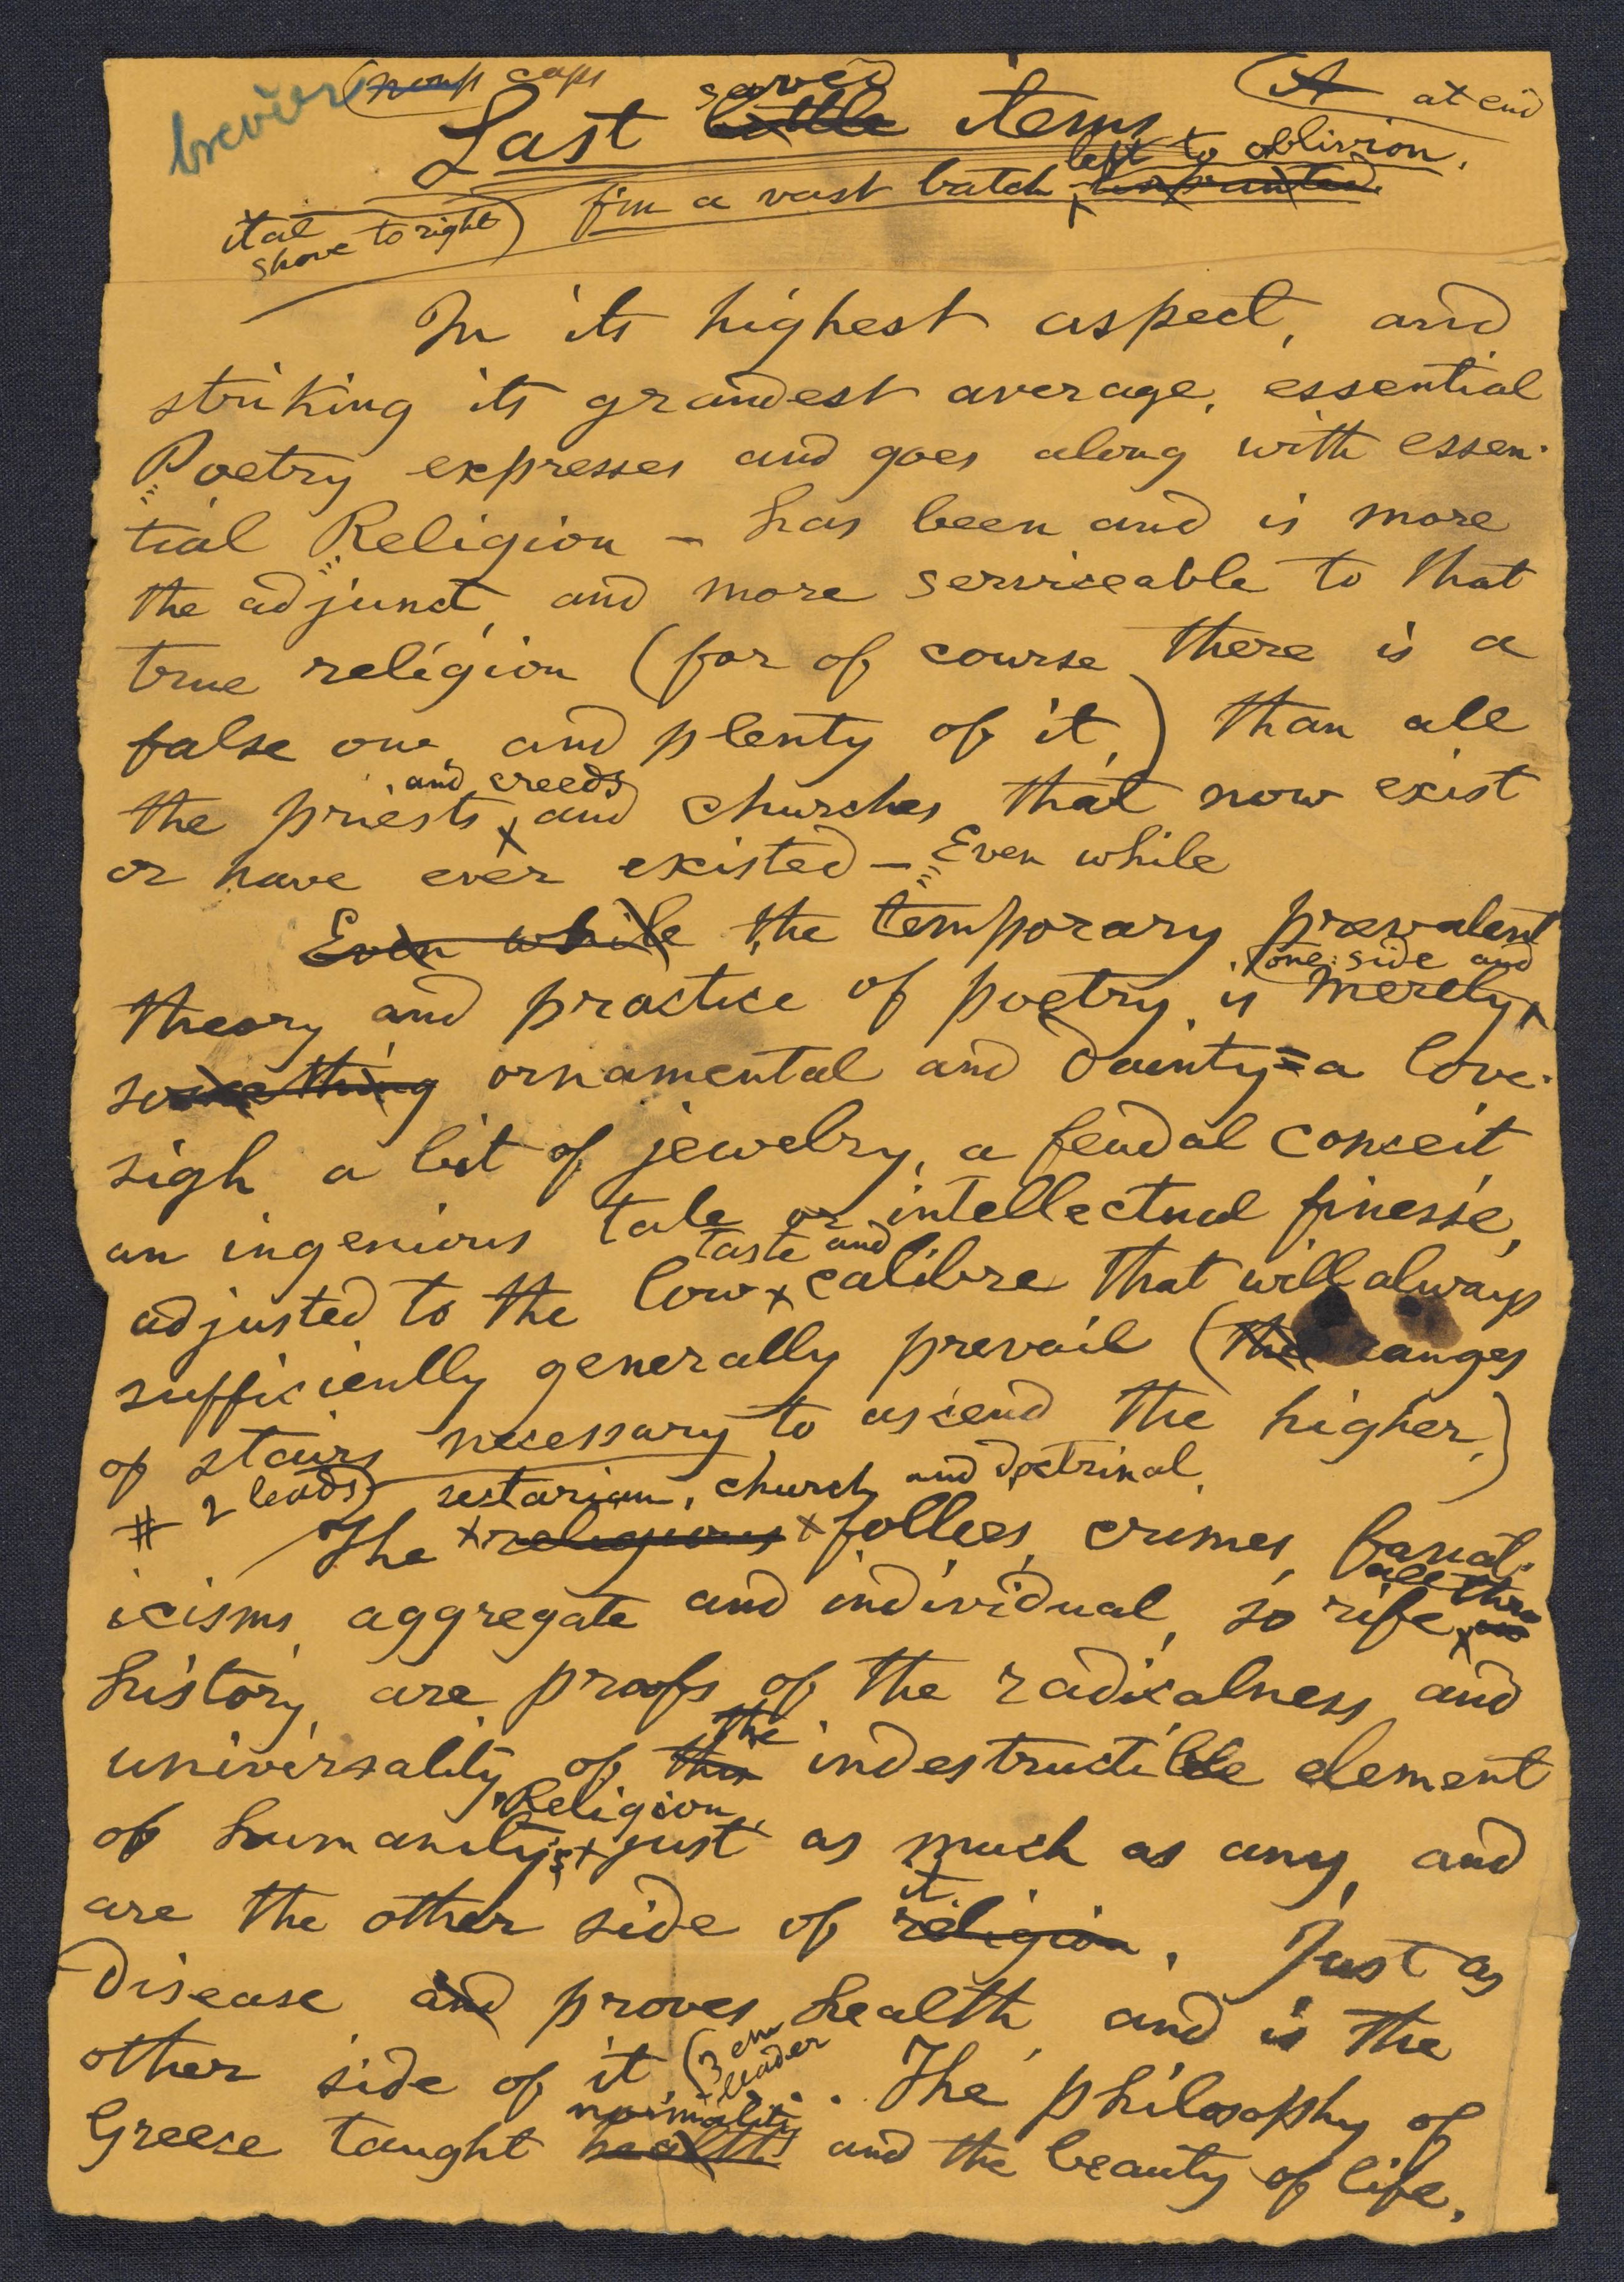 brevier (nonp caps
saved
Last little items
A at end
left to oblivion.
f'm a vast batch unprinted.
ital
shove to right)
In its highest aspect, and
striking its grandest average, essential
Poetry expresses and goes along with essen-
tial Religion — has been and is more
the adjunct, and more serviceable to that
true religion (for of course there is a
false one and plenty of it,) than all
and creeds
the priests and churches that now exist
or have ever existed — Even while
Even while the temporary prevalent
one-side and
theory and practice of poetry is merely
something ornamental and dainty = a love-
sigh a bit of jewelry, a feudal conceit
an ingenious tale or intellectual finesse,
taste and
adjusted to the low calibre that will always
sufficiently generally prevail (the ranges
of stairs necessary to ascend the higher.)
# 2 leads) sectarian, church and doctrinal,
The religious follies, crimes, fanat-
all thro
icisms aggregate and individual, so rife
history, are proofs of the radicalness and
the
universality of this indestructible element
Religion,
of humanity; just as much as any, and
it
are the other side of religion. Just as
Disease and proves health, and is the
other side of it (3 em
leader
. . The philosophy of
normality
Greece taught health and the beauty of life.